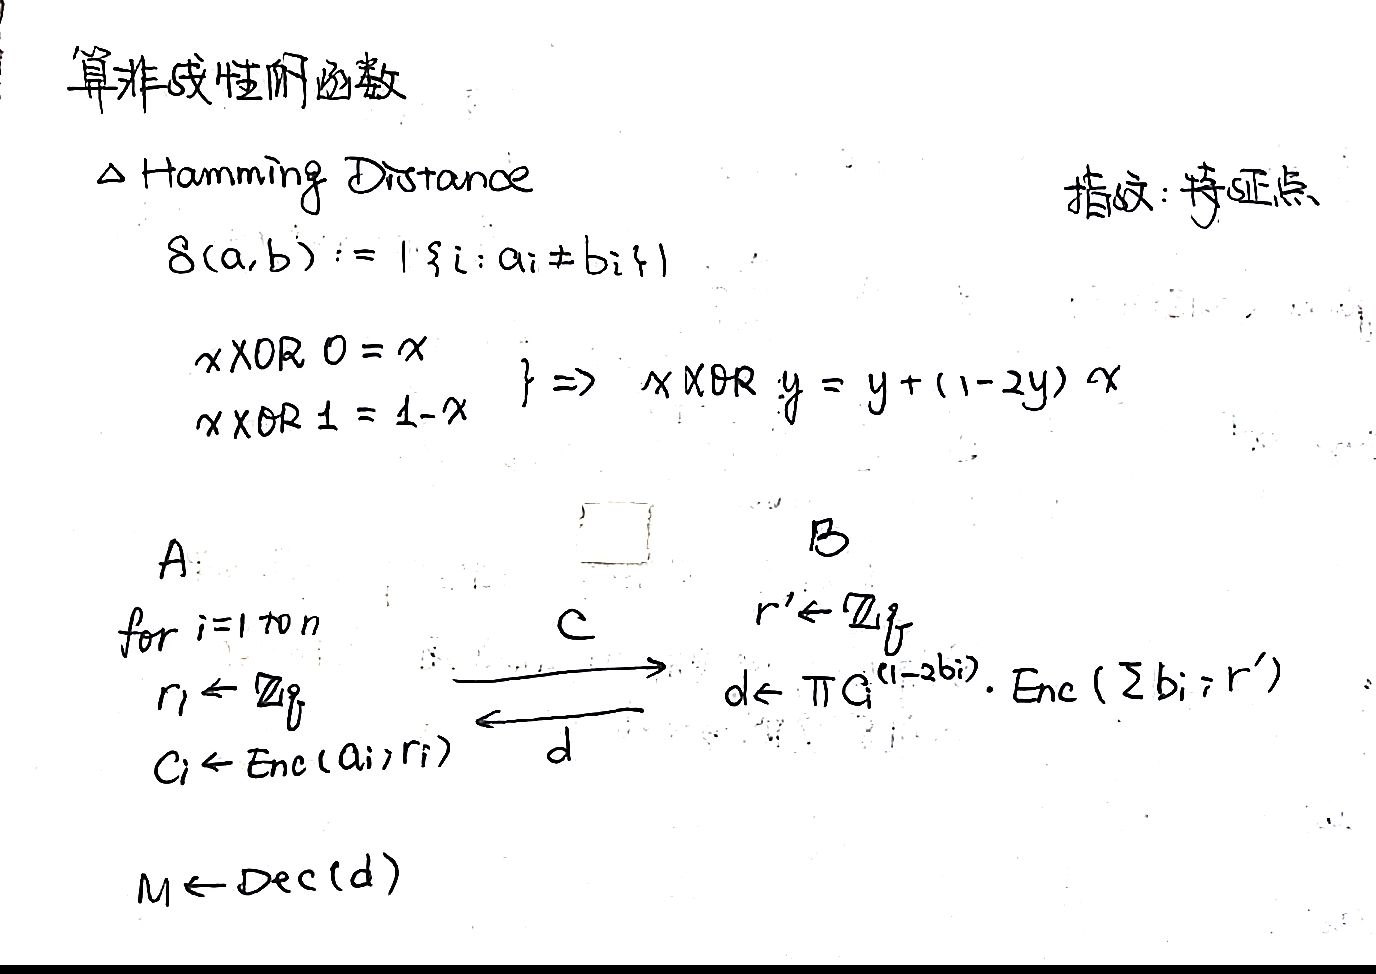 算非线性的函数
△ Hamming Distance
指纹：特征点
δ(a,b) := |{i: ai ≠ bi}|
x XOR 0 = x
x XOR 1 = 1-x
} => x XOR y = y + (1-2y) x
A
B
for i=1 to n
ri ← ℤq
ci ← Enc(ai; ri)
C
d
r' ← ℤq
d ← π Ci^(1-2bi) · Enc(Σbi; r')
M ← Dec(d)